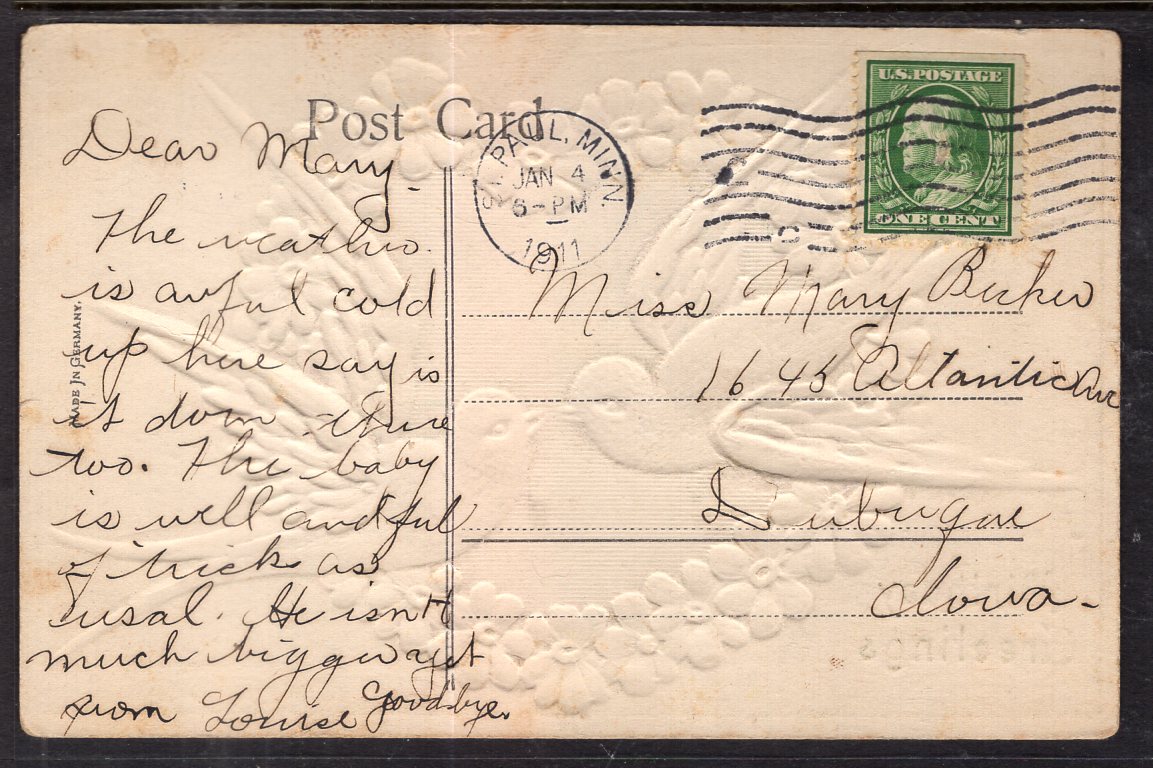 Post Card
U.S. POSTAGE
ONE CENT
ST. PAUL, MINN.
JAN 4
6-PM
1911
MADE IN GERMANY.
Dear Mary.
The weather
is awful cold
up here say is
it down there
too. The baby
is well and ful
of trick as
usal. He isn't
much bigger yet
from Louise Goodbye.
Miss Mary Becker
1645 Atlantic Ave
Dubuque
Iowa-
Greetings